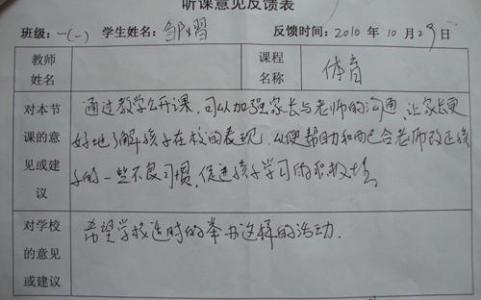 听课意见反馈表
班级:一(一) 学生姓名:邹習 反馈时间:2010年10月29日
教师姓名 课程名称 体育
对本节课的意见或建议
通过教学公开课,可以加强家长与老师的沟通,让家长更
好地了解孩子在校的表现,以便帮助和配合老师改正孩
子的一些不良习惯,促进孩子学习的积极性。
对学校的意见或建议
希望学校适时的举办这样的活动.